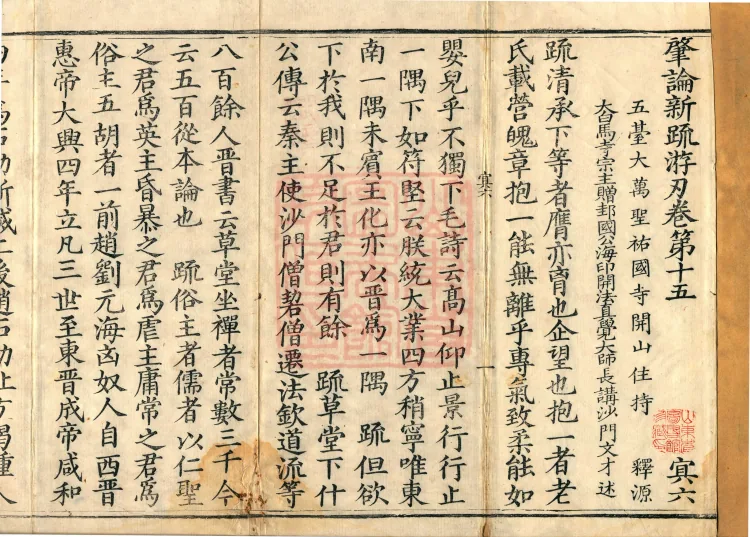 肇論新疏游刃卷第十五 㝠六
五臺大萬聖祐國寺開山住持 釋源
大白馬寺宗主贈邽國公海印開法真覺大師長講沙門文才述
疏清承下等者膺亦育也企望也抱一者老
氏載營魄章抱一能無離乎專氣致柔能如
嬰兒乎不獨下毛詩云髙山仰止景行行止
㝠六 一
一隅下如符堅云朕統大業四方稍寧唯東
南一隅未賓王化亦以晉爲一隅 疏但欲
下於我則不足於君則有餘 疏草堂下什
公傳云秦主使沙門僧䂮僧遷法欽道流等
八百餘人晉書云草堂坐禪者常數三千今
云五百從本論也 疏俗主者儒者以仁聖
之君爲英主昏暴之君爲虐主庸常之君爲
俗主五胡者一前趙劉元海匈奴人自西晉
惠帝大興四年立凡三世至東晉成帝咸和
四年爲石勒所滅二後趙石勒上方羯種人